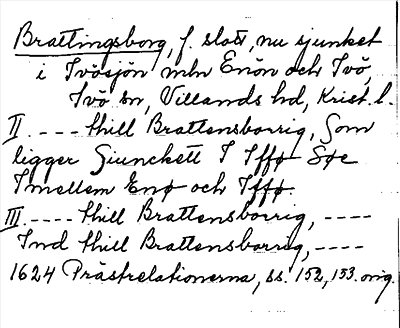 Brattingsborg, f. slott, nu sjunket
i Ivösjön mln Enön och Ivö,
Ivö sn, Villands hd, Krist. l.
II. - - - - thill Brattensborrig, Som
ligger Siunckett I Iffø Søe
Imellem Enø och Iffø.
III. - - - - thill Brattensborrig, - - - -
Ind thill Brattensborrig, - - - -
1624 Prästrelationerna, ss. 152, 153. orig.